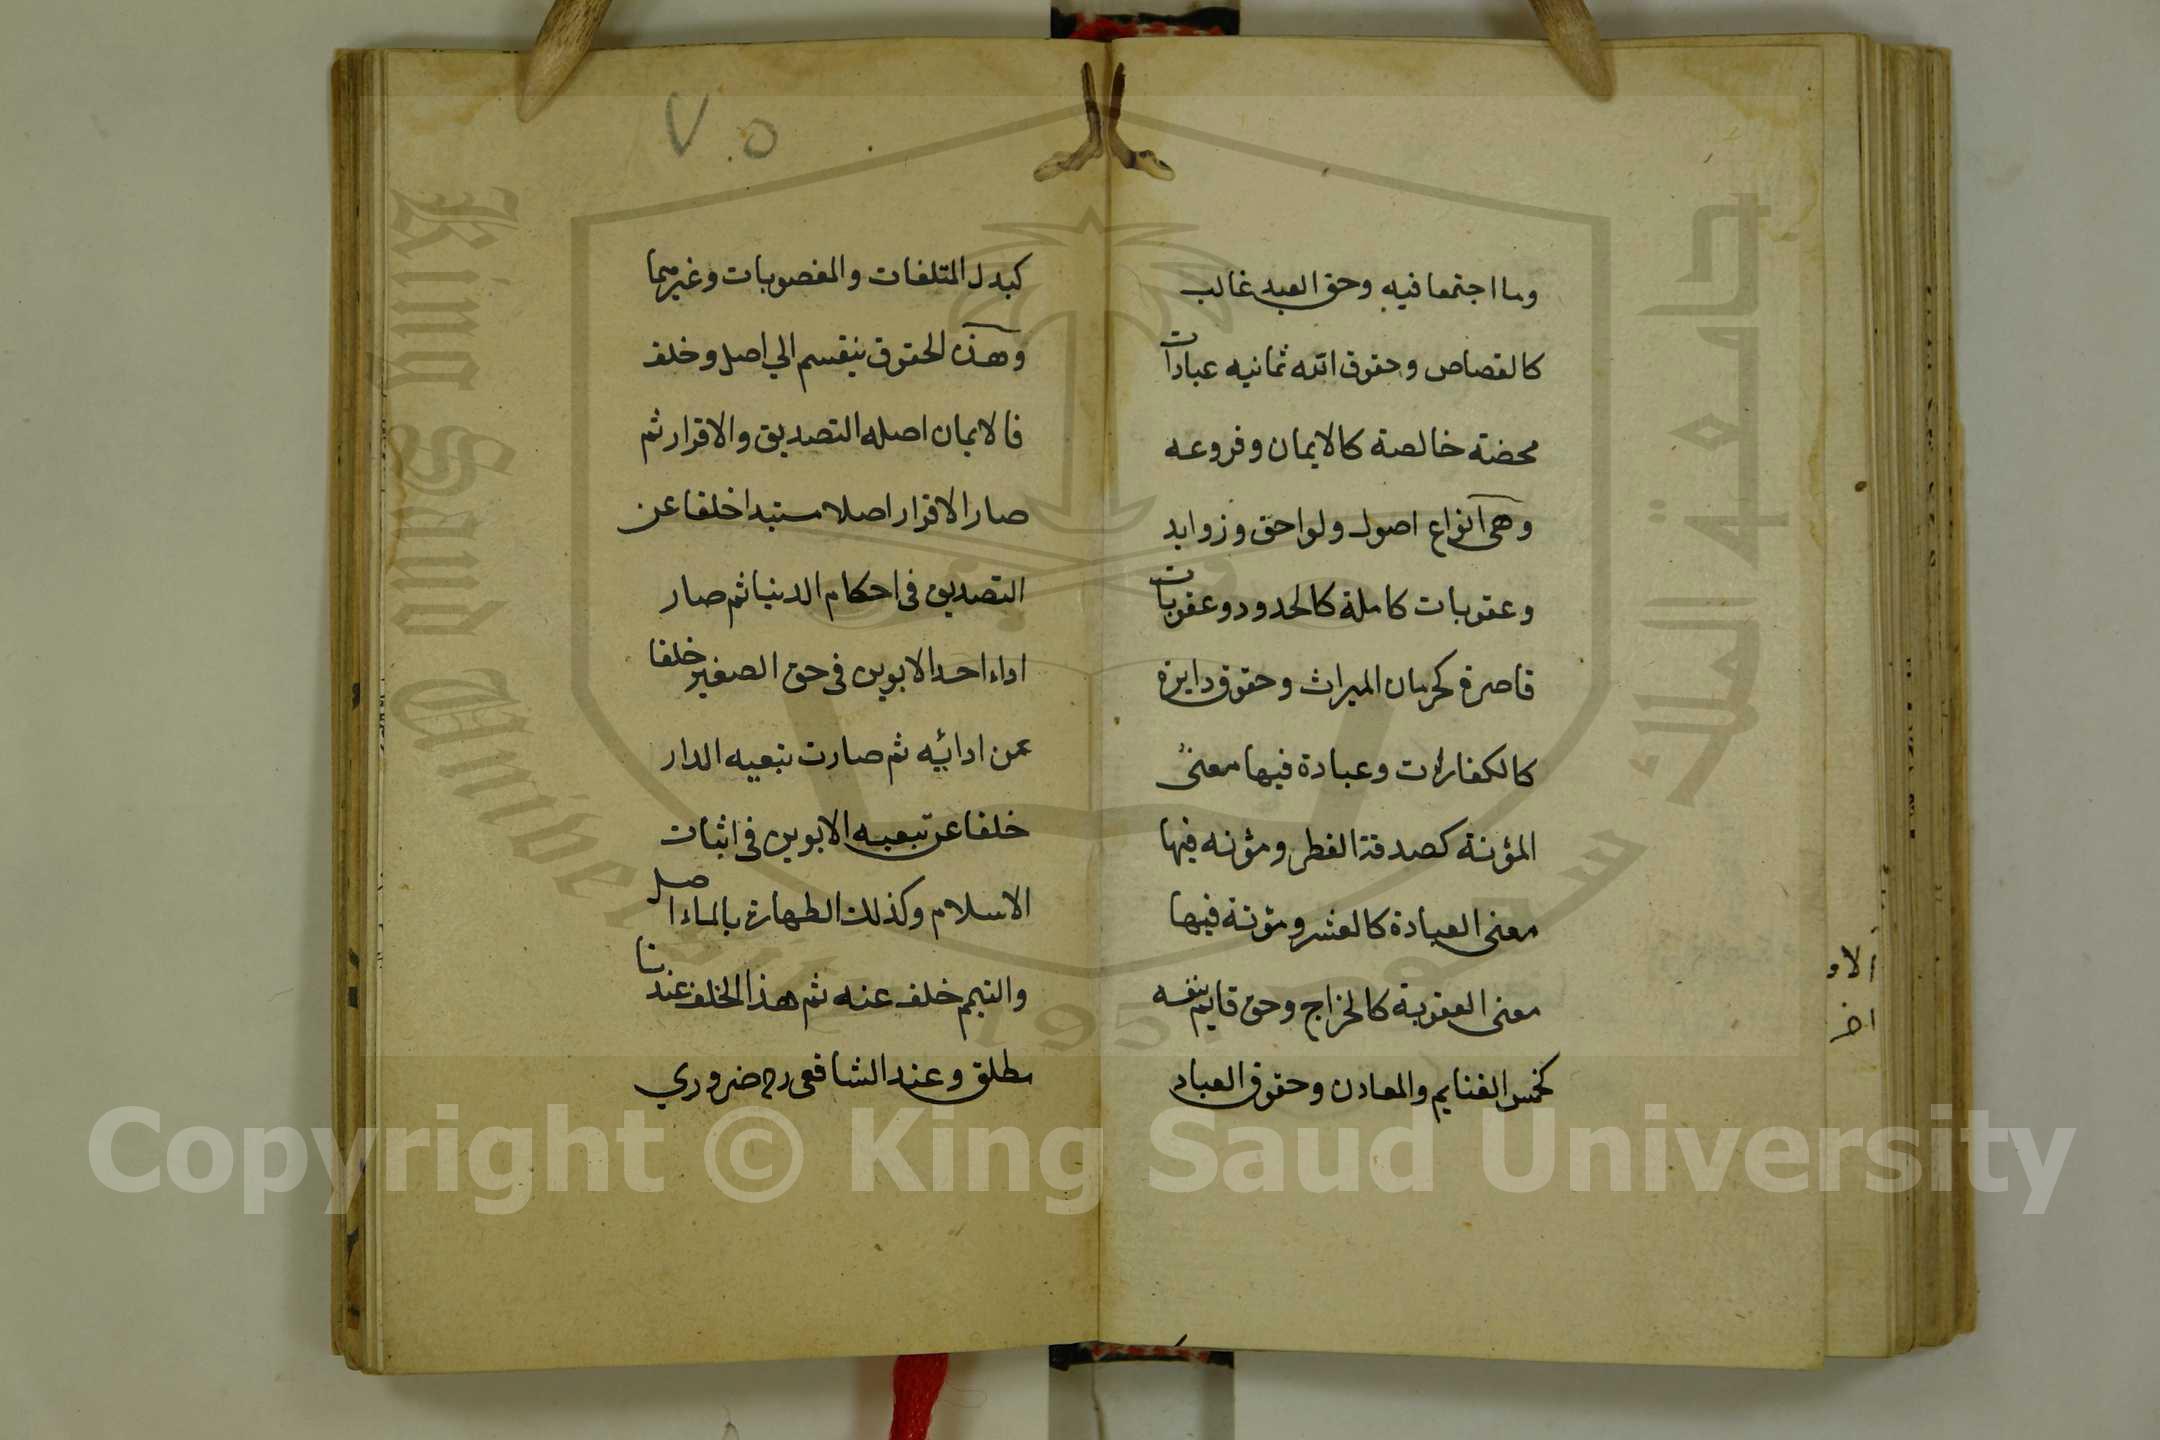 وما اجتمعا فيه وحق العبد غالب
كالقصاص وحقوق الله ثمانيه عبادات
محضة خالصة كالايمان وفروعه
وهي انواع اصول ولواحق وزوايد
وعقوبات كاملة كالحدود وعقوبات
قاصرة كحرمان الميراث وحقوق دايرة
كالكفارات وعبادة فيها معنى
المؤنة كصدقة الفطر ومؤنه فيها
معنى العبادة كالعشر ومؤنة فيها
معنى العقوبة كالخراج وحق قايم بنفسه
كخمس الغنايم والمعادن وحقوق العباد
كبدل المتلفات والمغصوبات وغيرهما
وهذه الحقوق ينقسم الي اصل وخلف
فالايمان اصله التصديق والاقرار ثم
صار الاقرار اصلا مستبدا خلفا عن
التصديق في احكام الدنيا ثم صار
اداء احد الابوين في حق الصغير خلفا
عن ادائيه ثم صارت تبعيه الدار
خلفا عن تبعيه الابوين في اثبات
الاسلام وكذلك الطهارة بالماء اصل
والتيمم خلف عنه ثم هذا الخلف عندنا
مطلق وعند الشافعي رح ضروري
الاو
اخر
٧٠٥
King Saud University
جامعة الملك سعود
1957
Copyright © King Saud University